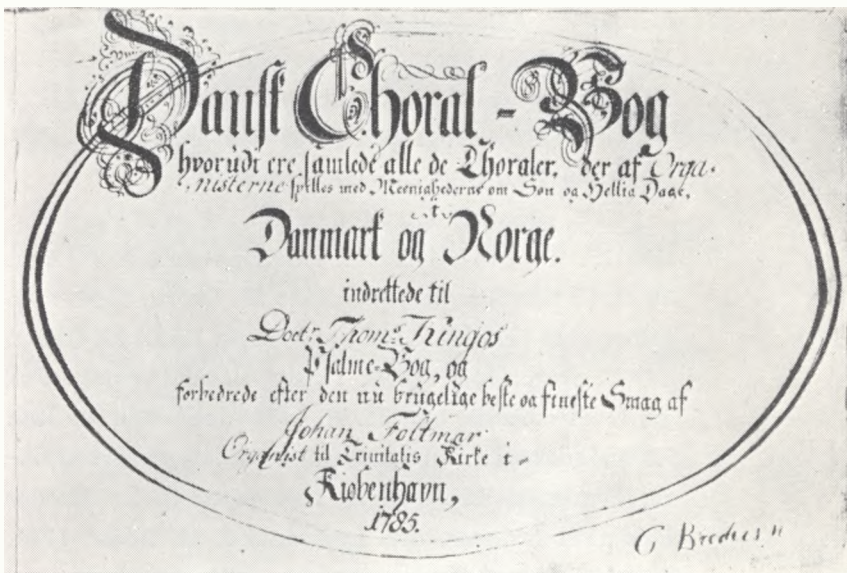 Dansk Choral-Bog
hvorudi ere samlede alle de Choraler, der af Orga-
nisterne spilles med Meenighederne om Søn og Hellig Dage,
i
Danmark og Norge.
indrettede til
Doct.r Thom.s Kingos
Psalme-Bog, og
forbedrede efter den nu brugelige beste og fineste Smag af
Johan Foltmar
Organist til Trinitatis Kirke i
Kiøbenhavn,
1785.